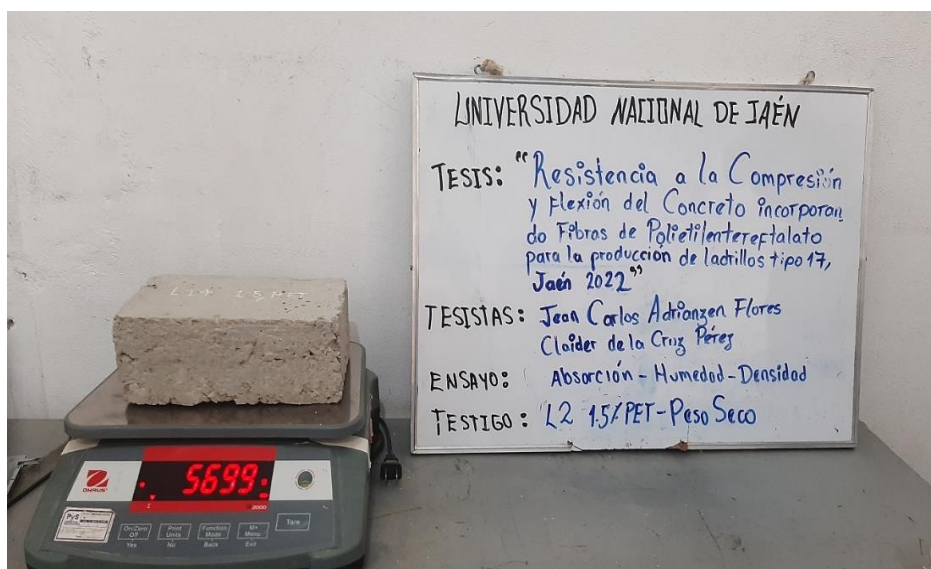 UNIVERSIDAD NACIONAL DE JAÉN
TESIS: "Resistencia a la Compresión
y Flexión del Concreto incorporan
do Fibras de Polietilentereftalato
para la producción de ladrillos tipo 17,
Jaén 2022"
TESISTAS: Jean Carlos Adrianzen Flores
Claider de la Cruz Pérez
ENSAYO: Absorción - Humedad - Densidad
TESTIGO: L2 1.5% PET - Peso Seco
1.5 PET
5699
OHAUS
2000
PyS
On/Zero Print Function M+ Tare
Off Units Mode Menu
Yes No Back Exit